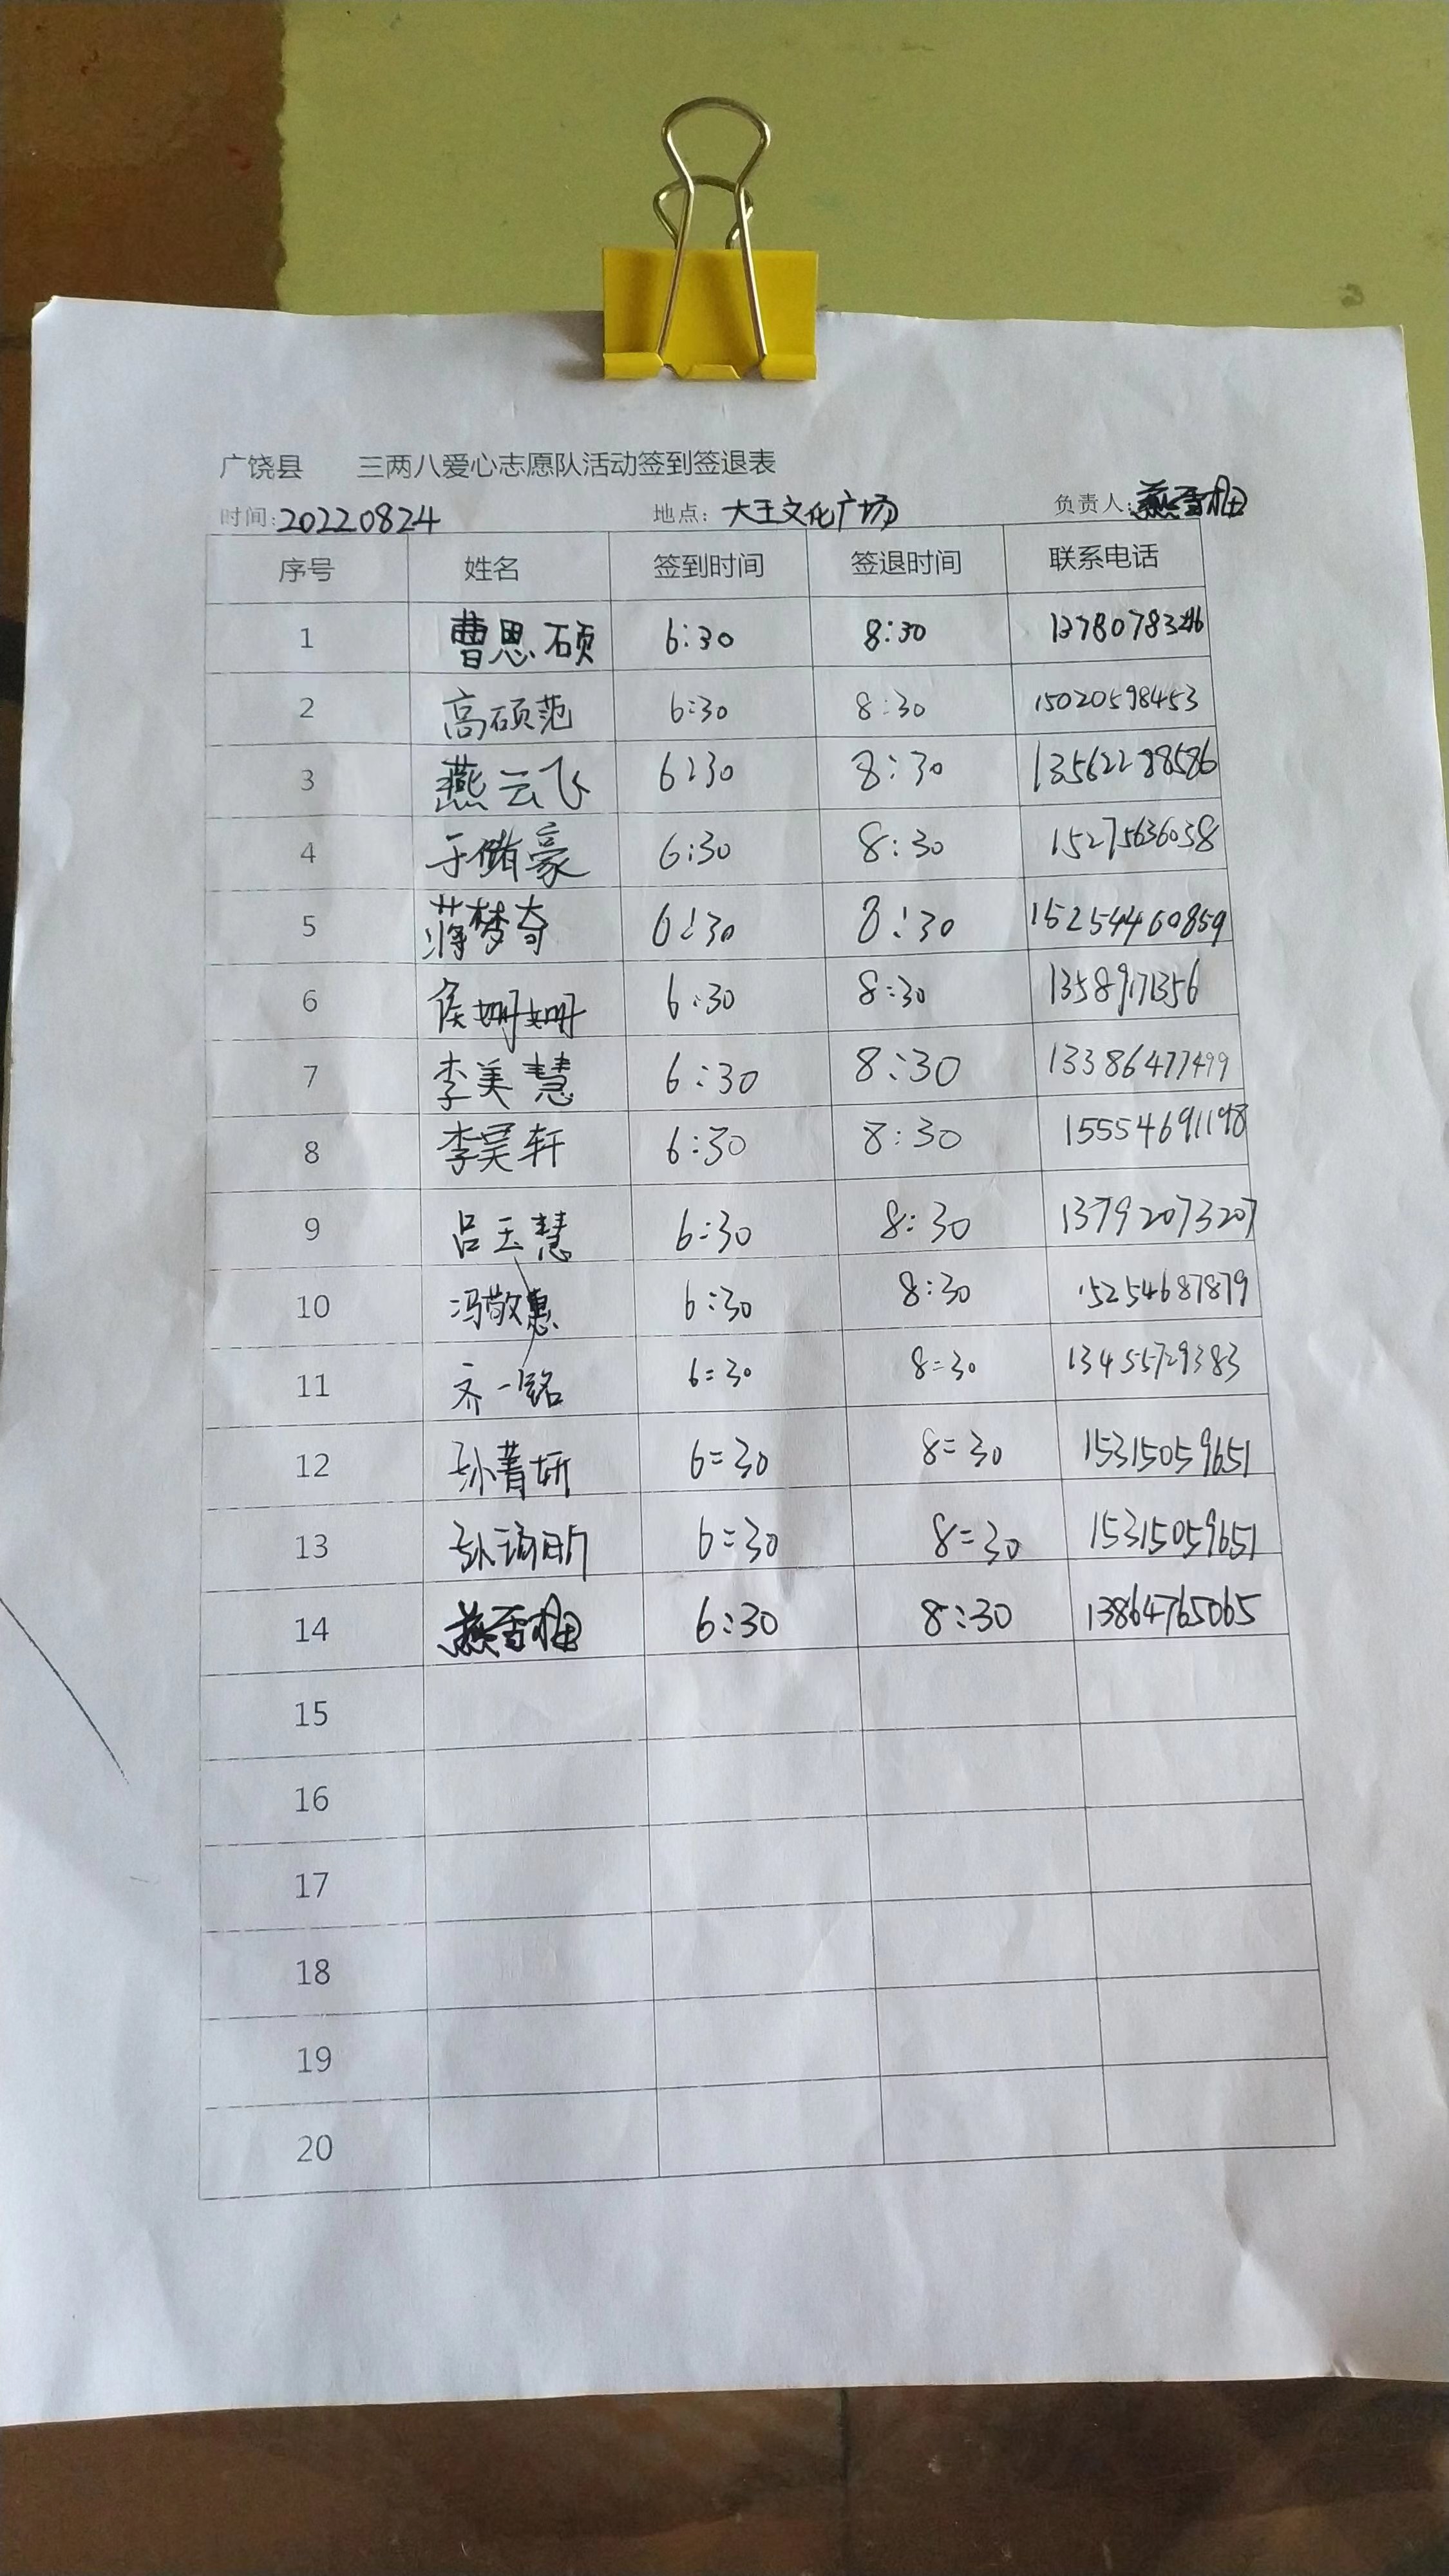 广饶县 三两八爱心志愿队活动签到签退表
时间:20220824 地点:大王文化广场 负责人:燕香梅
序号 姓名 签到时间 签退时间 联系电话
1 曹思硕 6:30 8:30
2 高硕范 6:30 8:30 15020598453
3 燕云飞 6:30 8:30 13562288586
4 于储豪 6:30 8:30 15275636038
5 蒋梦奇 6:30 8:30 15254460859
6 侯姗姗 6:30 8:30
7 李美慧 6:30 8:30 13386477499
8 李昊轩 6:30 8:30 15554691198
9 吕玉慧 6:30 8:30 13792073207
10 冯敬惠 6:30 8:30 15254687879
11 齐一铭 6=30 8=30 13455729383
12 孙菁妍 6=30 8=30 15315059651
13 6=30 8=30 15315059651
14 燕香梅 6:30 8:30 13864765065
15
16
17
18
19
20